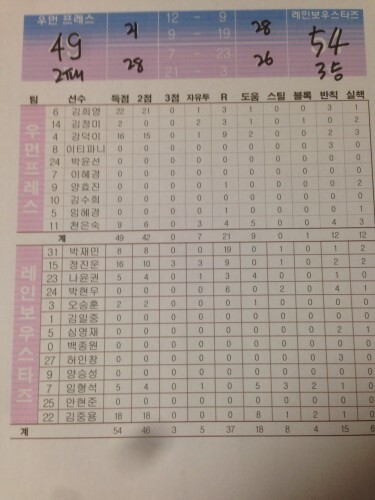 우먼 프레스 12 - 9 레인보우스타즈
49 21 9 - 19 28 54
28 7 - 23 26
2패 21 - 3 3승
팀 선수 득점 2점 3점 자유투 R 도움 스틸 블록 반칙 실책
우먼프레스
6 김희영 22 21 0 1 3
14 김정미 2 0 0 2 3 1 0 1 0 2
4 강덕이 16 15 0 1 9 2 0 0 2 3
8 이티파니 0 0 0 0 0 0 0 0 3 0
24 박윤선 0 0 0 0 0 0 0 0 0 0
7 이혜경 0 0 0 0 0 0 0 0 0 0
9 양효진 0 0 0 0 1 0 0 0 0 2
10 김수희 0 0 0 0 0 0 0 0 0 0
5 임혜경 0 0 0 0 1 0 0 0 0 1
11 천은숙 9 6 0 3 4 5 0 0 4 3
계 49 42 0 7 21 9 0 1 12 12
레인보우스타즈
31 박재민 8 8 0 0 19 0 0 1 1 2
15 정진운 16 10 3 3 9 0 1 0 2 2
23 나윤권 5 4 0 1 3 4 0 0 1 0
24 박현우 0 0 0 0 6 0 2 0 4 1
3 오승훈 2 2 0 0 0 1 0 0 0 0
1 김필중 0 0 0 0 0 0 0 0 0 0
5 심영재 0 0 0 0 0 0 0 0 2 1
0 백종원 0 0 0 0 0 0 0 0 0 0
27 허인창 0 0 0 0 0 0 0 0 3 0
9 양승성 0 0 0 0 0 0 0 0 0 0
7 임형석 5 4 0 1 0 5 3 2 1 0
25 안현준 0 0 0 0 0 0 0 0 0 0
22 김중용 18 18 0 0 0 8 1 2 1 0
계 54 46 3 5 37 18 8 4 15 6